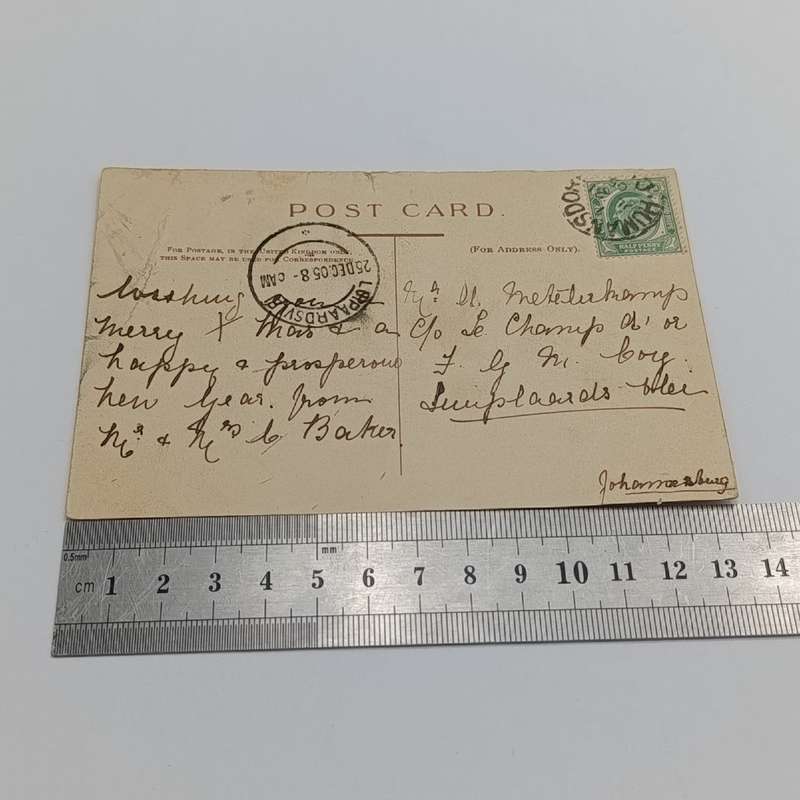 POST CARD.
FOR POSTAGE, IN THE UNITED KINGDOM ONLY,
THIS SPACE MAY BE USED FOR CORRESPONDENCE
(FOR ADDRESS ONLY).
HALFPENNY
POSTAGE
HUMANSDORP
LUIPAARDSVLEI
25 DEC.05 8 - AM
merry X mas & a
happy & prosperous
new Year. from
Mr & Mrs C Baker.
Mr H. Metelerkamp
C/o Le Champ d' or
F. G M. Coy.
Luiplaards Vlei
Johannesburg
0.5mm
mm
cm 1 2 3 4 5 6 7 8 9 10 11 12 13 14